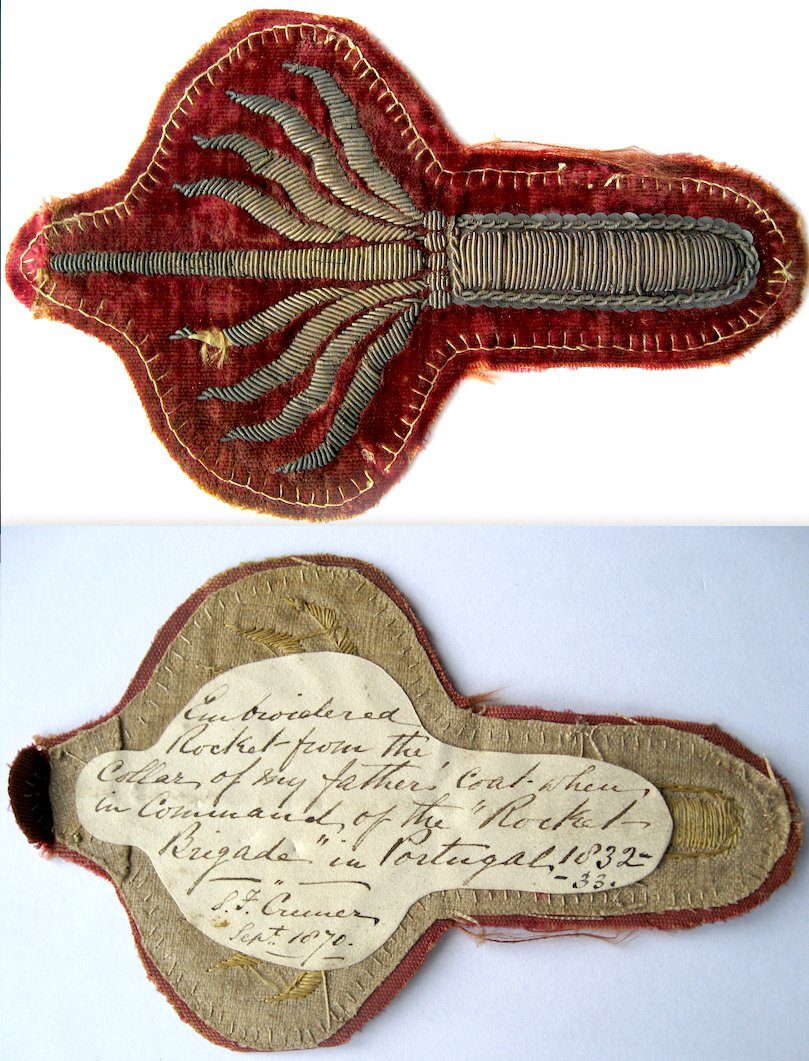 Embroidered
Rocket from the
Collar of my father's coat when
in Command of the "Rocket
Brigade" in Portugal, 1832-
-33.
S. F. Cremer
Sept. 1870.